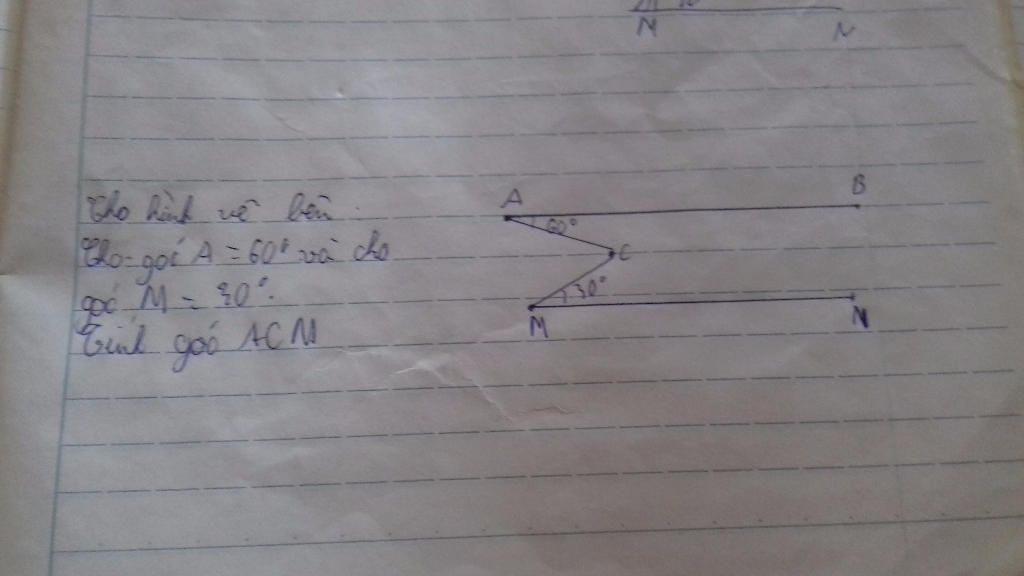 N N
Cho hình vẽ bên.
Cho góc A = 60° và cho
góc M = 30°.
Tính góc ACM
A B
60°
C
30°
M N